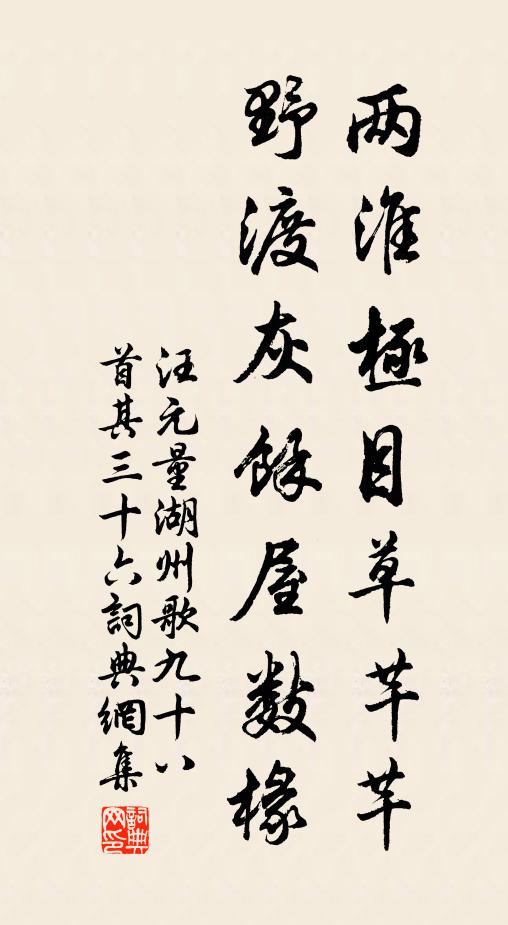 两淮極目草芊芊
野渡灰餘屋數椽
汪元量湖州歌九十八
首其三十六詞典網集
詞典网印